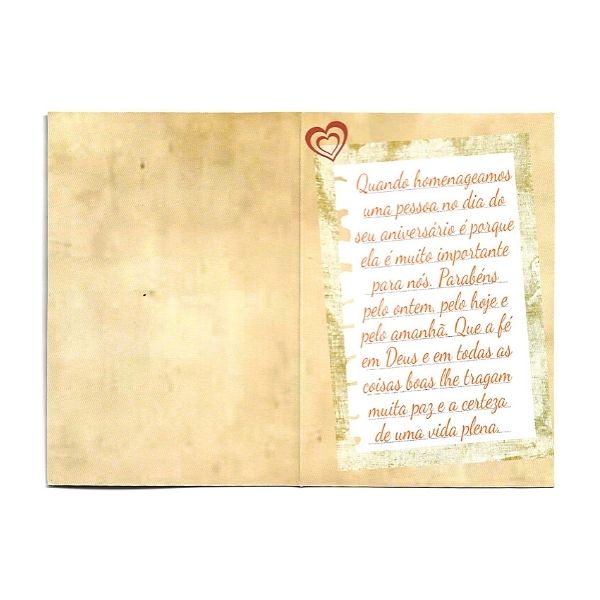 Quando homenageamos
uma pessoa no dia do
seu aniversário é porque
ela é muito importante
para nós. Parabéns
pelo ontem, pelo hoje e
pelo amanhã. Que a fé
em Deus e em todas as
coisas boas lhe tragam
muita paz e a certeza
de uma vida plena.